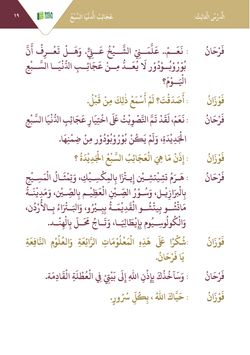 الدَّرْسُ الثَّالِثُ عَجَائِبُ الدُّنْيَا السَّبْعُ ١٩
فَرْحَانُ : نَعَمْ.. عَلَّمَنِي الشَّيْخُ عَلِيٌّ، وَهَلْ تَعْرِفُ أَنَّ
بُورُوبُودُور لَا يُعَدُّ مِنْ عَجَائِبِ الدُّنْيَا السَّبْعِ
الْيَوْمَ؟
فَوْزَانُ : أَصَدَقْتَ؟ لَمْ أَسْمَعْ ذَلِكَ مِنْ قَبْلُ.
فَرْحَانُ : نَعَمْ، لَقَدْ تَمَّ التَّصْوِيتُ عَلَى اخْتِيَارِ عَجَائِبِ الدُّنْيَا السَّبْعِ
الْجَدِيدَةِ، وَلَمْ يَكُنْ بُورُوبُودُور مِنْ ضِمْنِهَا.
فَوْزَانُ : إِذَنْ مَا هِيَ الْعَجَائِبُ السَّبْعُ الْجَدِيدَةُ ؟
فَرْحَانُ : هَرَمُ تشِيتْشِين إِيتْزَا بِالْمِكْسِيكِ، وَتِمْثَالُ الْمَسِيحِ
بِالْبَرَازِيلِ، وَسُورُ الصِّينِ الْعَظِيمِ بِالصِّينِ، وَمَدِينَةُ
مَاتْشُو بِيتْشُو الْقَدِيمَةُ بِبِيرُو، وَالْبَتْرَاءُ بِالْأُرْدُنِ،
وَالْكُولُوسِيُومِ بِإِيطَالِيَا، وَتَاجُ مَحَل بِالْهِنْدِ.
فَوْزَانُ : شُكْرًا عَلَى هَذِهِ الْمَعْلُومَاتِ الرَّائِعَةِ وَالْعُلُومِ النَّافِعَةِ
يَا فَرْحَانُ.
فَرْحَانُ : وَسَآخُذُكَ بِإِذْنِ اللهِ إِلَى بَيْتِي فِي الْعُطْلَةِ الْقَادِمَةِ.
فَوْزَانُ : حَيَّاكَ اللهُ ، بِكُلِّ سُرُورٍ.